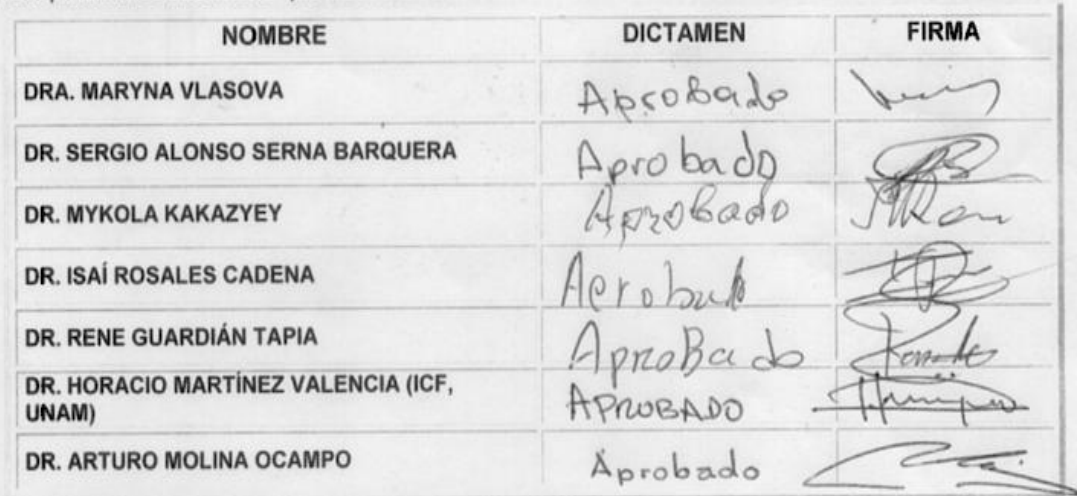 NOMBRE DICTAMEN FIRMA
DRA. MARYNA VLASOVA Aprobado
DR. SERGIO ALONSO SERNA BARQUERA Aprobado
DR. MYKOLA KAKAZYEY Aprobado
DR. ISAÍ ROSALES CADENA Aprobado
DR. RENE GUARDIÁN TAPIA Aprobado
DR. HORACIO MARTÍNEZ VALENCIA (ICF,
UNAM) APROBADO
DR. ARTURO MOLINA OCAMPO Aprobado